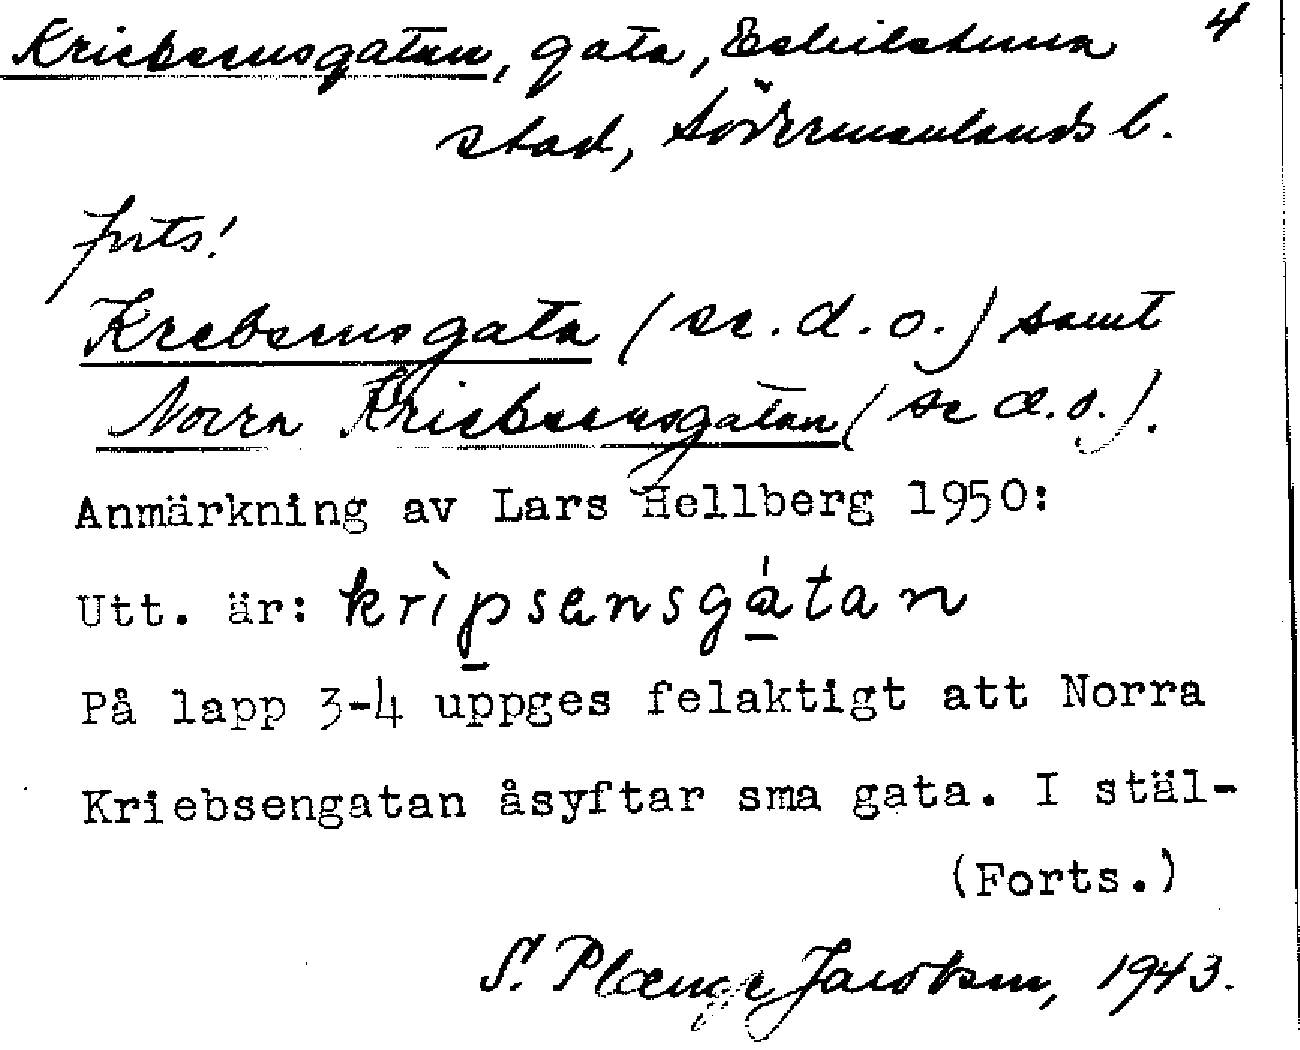 Kriebsensgatan, gata, Eskilstuna 4
stad, Södermanlands l.
Forts!
Krebsensgata (se. d. o.) samt
Norra Kriebsensgatan (se d.o.).
Anmärkning av Lars Hellberg 1950:
Utt. är: krìpsensgátan
På lapp 3-4 uppges felaktigt att Norra
Kriebsengatan åsyftar sma gata. I stäl-
(Forts.)
S. Plænge Jacobsen, 1943.